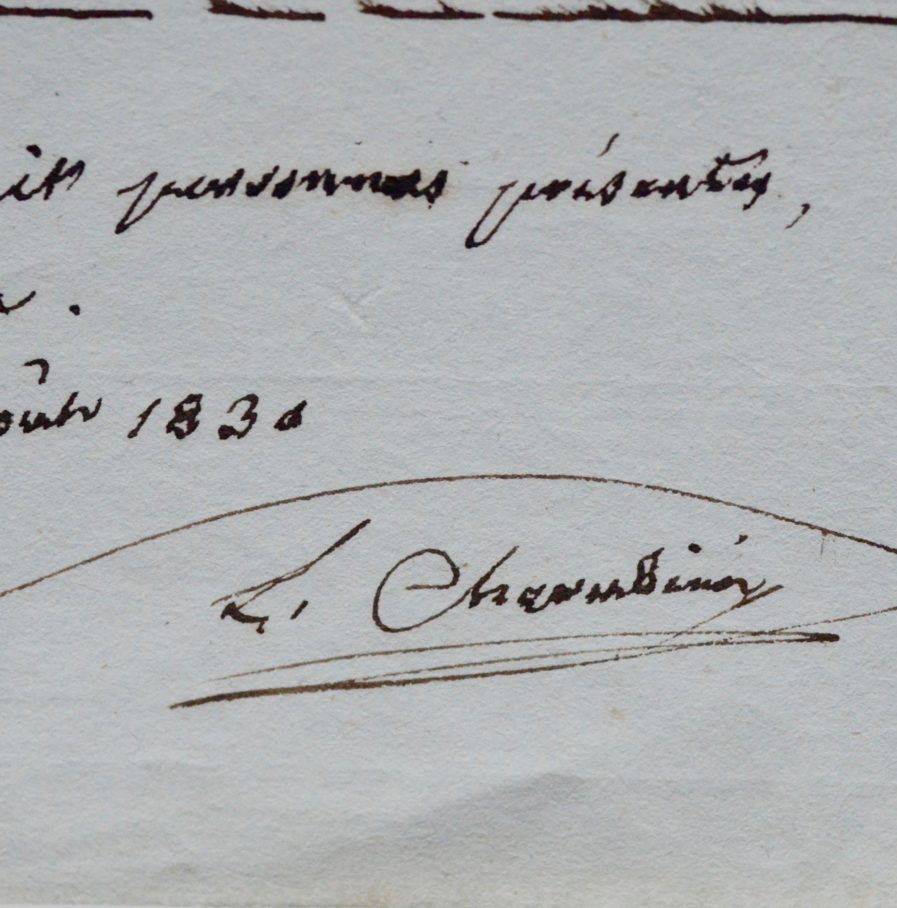 personnes présentes,
août 1830
L. Cherubini